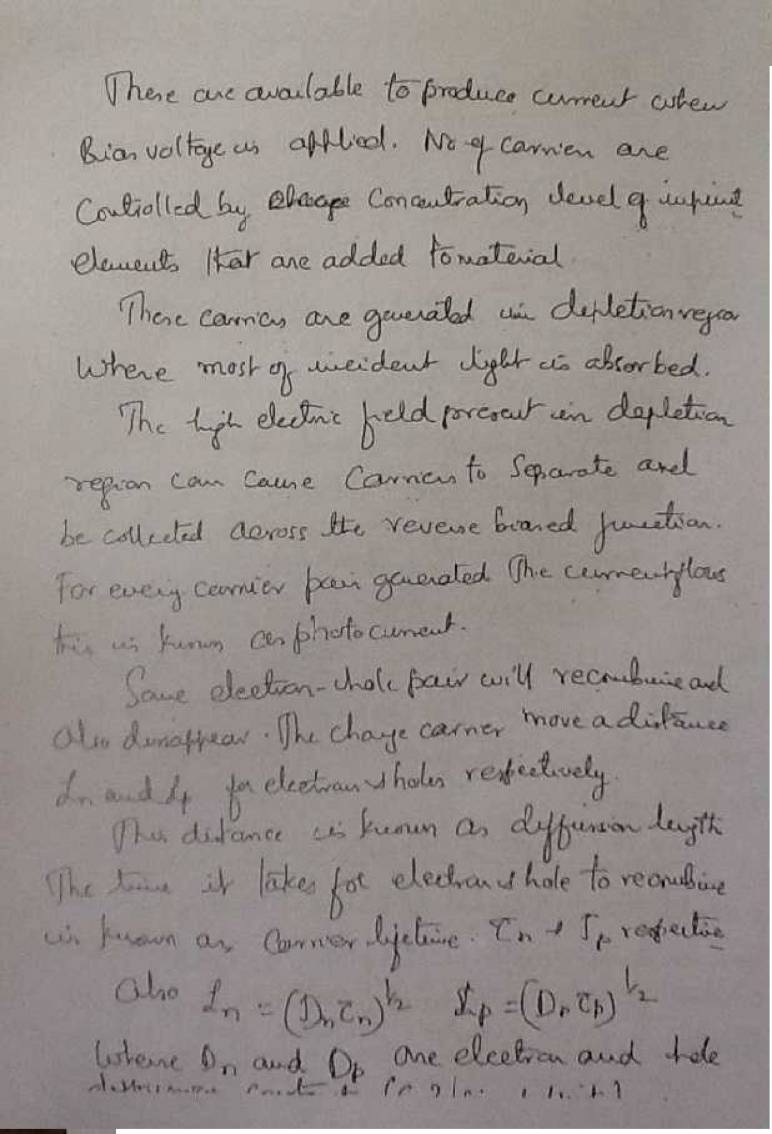 These are available to produce current when
Bias voltage is applied. No of carriers are
Controlled by Concentration level of
elements that are added to material
These carriers are generated in depletion region
Where most of incident light is absorbed.
The high electric field present in depletion
region can cause Carriers to Separate and
be collected across the reverse biased junction.
For every carrier pair generated The current flows
this is known as photocurrent.
Some electron-hole pair will recombine and
also disappear. The charge carrier move a distance
Ln and Lp for electron & holes respectively.
This distance is known as diffusion length
The time it takes for electron & hole to recombine
is known as Carrier lifetime. τn & τp respective
Also Ln = (Dnτn)^1/2 Lp = (Dpτp)^1/2
Where Dn and Dp are electron and hole